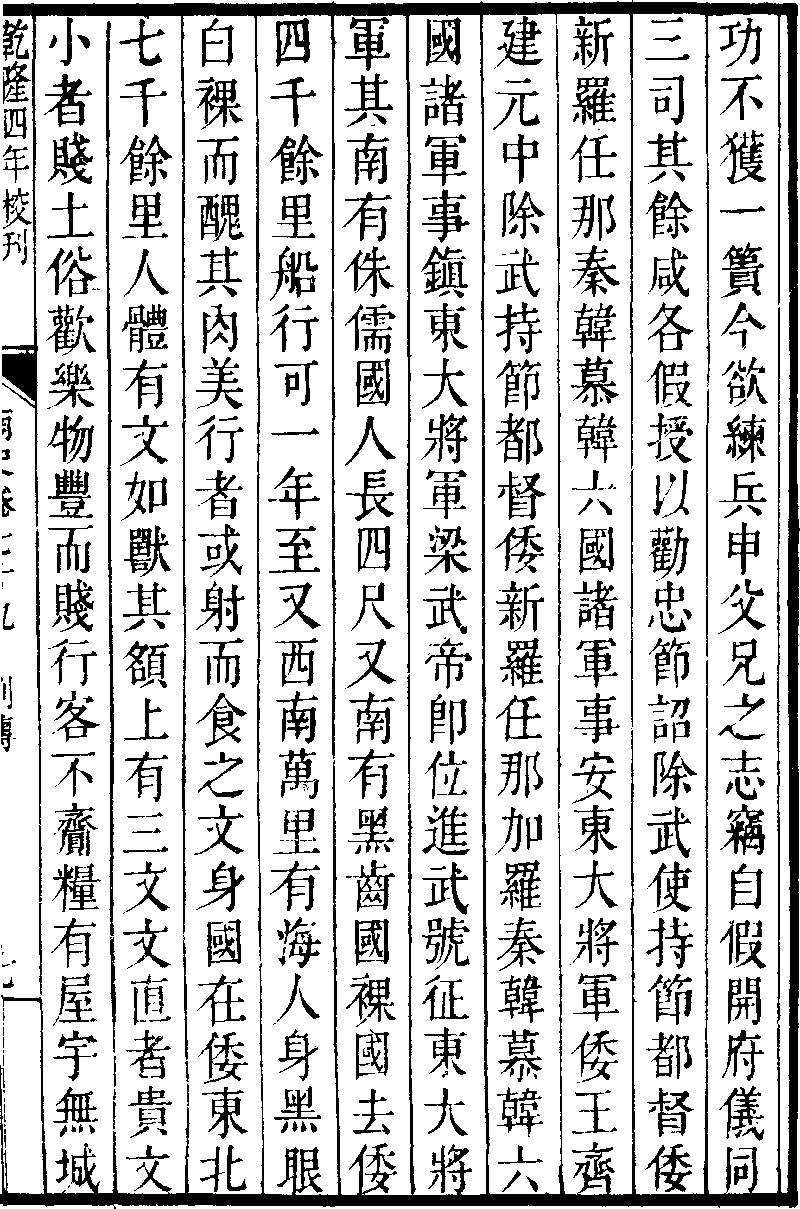 功不獲一簣今欲練兵申父兄之志竊自假開府儀同
三司其餘咸各假授以勸忠節詔除武使持節都督倭
新羅任那秦韓慕韓六國諸軍事安東大將軍倭王齊
建元中除武持節都督倭新羅任那加羅秦韓慕韓六
國諸軍事鎮東大將軍梁武帝卽位進武號征東大將
軍其南有侏儒國人長四尺又南有黑齒國裸國去倭
四千餘里船行可一年至又西南萬里有海人身黑眼
白裸而醜其肉美行者或射而食之文身國在倭東北
七千餘里人體有文如獸其額上有三文文直者貴文
小者賤土俗歡樂物豐而賤行客不齎糧有屋宇無城
乾隆四年校刊